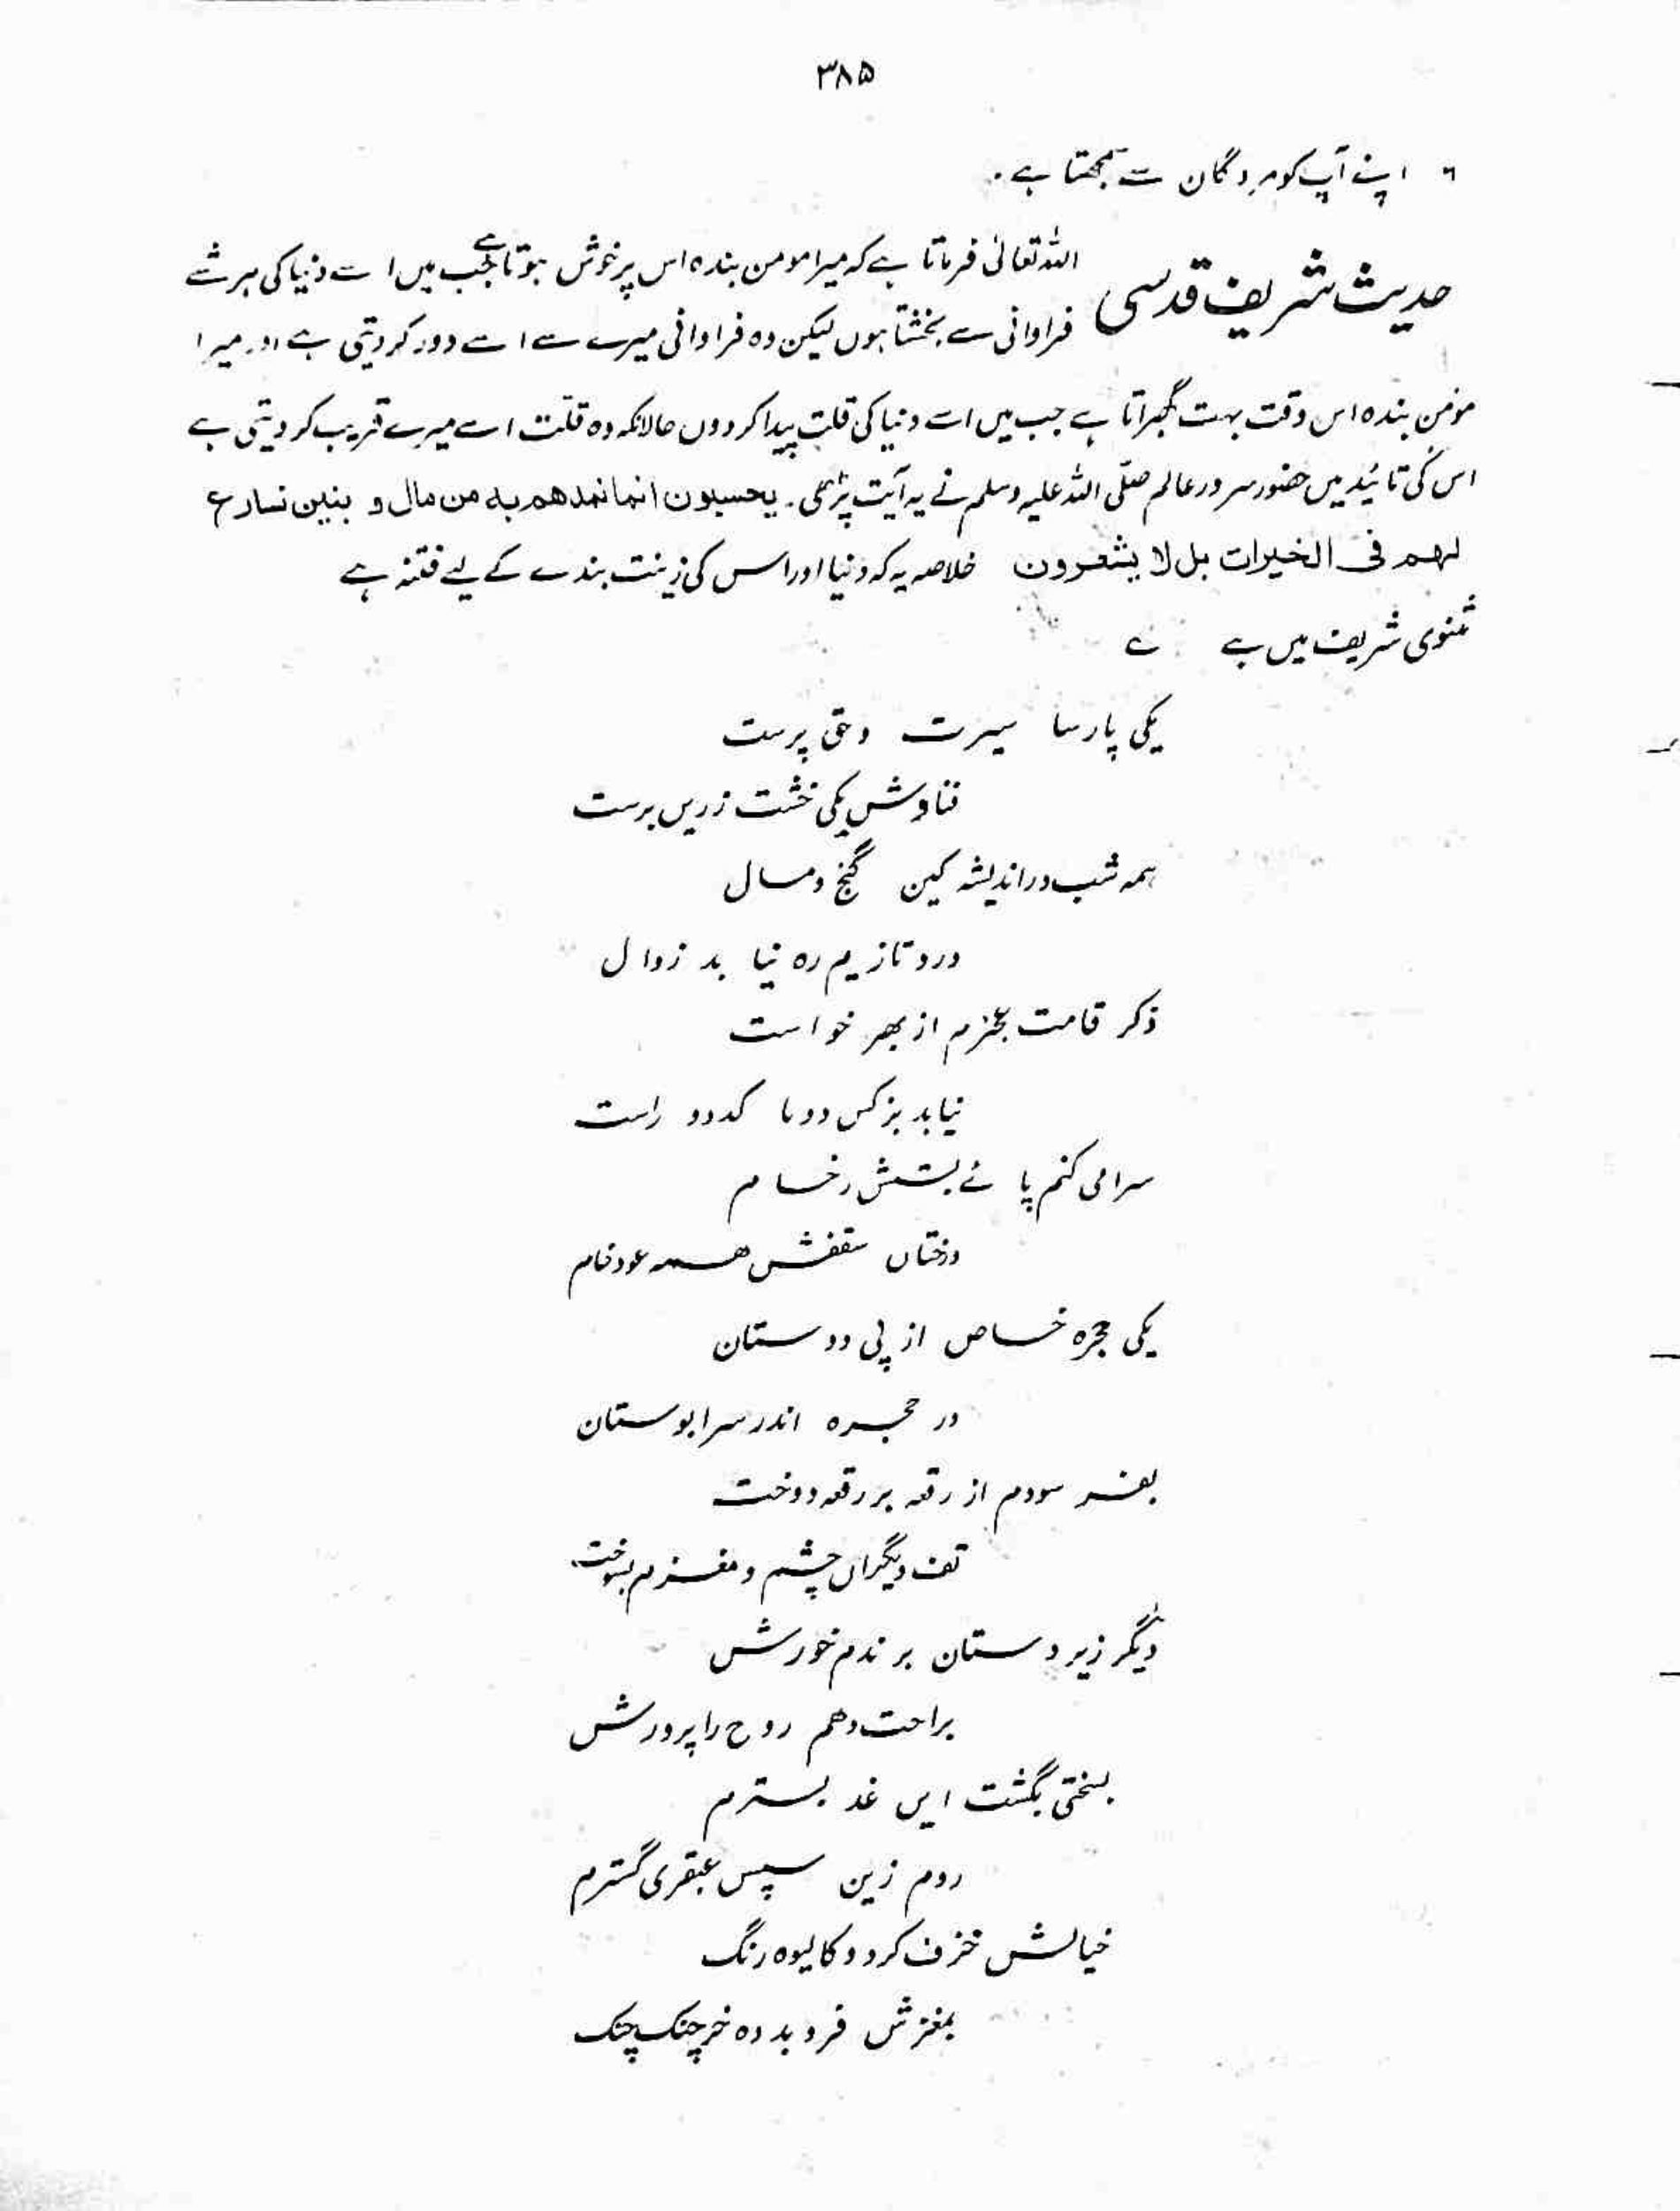 ۳۸۵
۶ اپنے آپ کو مردگان سے سمجھتا ہے .
حدیث شریف قدسی
اللہ تعالیٰ فرماتا ہے کہ میرا مومن بندہ اس پر خوش ہوتا ہے جب میں اسے دنیا کی ہر شے
فراوانی سے بخشتا ہوں لیکن وہ فراوانی میرے سے اسے دور کر دیتی ہے اور میرا
مومن بندہ اس وقت بہت گھبراتا ہے جب میں اسے دنیا کی قلت پیدا کر دوں حالانکہ وہ قلّت اسے میرے قریب کر دیتی ہے
اس کی تائید میں حضور سرور عالم صلّی اللہ علیہ وسلم نے یہ آیت پڑھی ۔ یحسبون انما نمدھم بہ من مال و بنین نسارع
لہم فی الخیرات بل لا یشعرون خلاصہ یہ کہ دنیا اور اس کی زینت بندے کے لیے فتنہ ہے
مثنوی شریف میں ہے ے
یکی پارسا سیرت و حق پرست
فتاوش یکی خشت زریں برست
ہمہ شب در اندیشہ کین گنج و مال
درو تازیم رہ نیا بد زوال
ذکر قامت عجزم از بھر خواست
نیابد بر کس دوتا کدو راست
سرامی کنم پائے بستش رخام
درختاں سقفش ھمہ عود خام
یکی حجرہ خاص از پی دوستان
در حجرہ اندر سرابوستان
بفر سودم از رقعہ بر رقعہ دوخت
تف دیگراں چشم و مغزم بسوخت
دیگر زیر دستان برندم خورش
براحت دھم روح را پرورش
بسختی بگشت ایں غد بسترم
روم زین سپس عبقری گسترم
خیالش خزف کرد و کالیوہ رنگ
بمغزش فرو بدہ خرچنک چنک